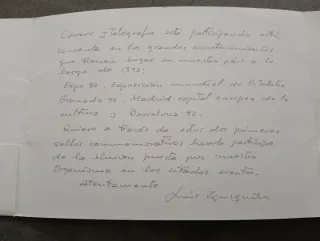 Correos y Telégrafos está participando acti-
vamente en los grandes acontecimientos
que tienen lugar en nuestro país a lo
largo de 1992:
Expo 92. Exposición mundial de Filatelia
Granada 92, Madrid capital europea de la
cultura y Barcelona 92.
Quiero a través de estos dos primeros
sellos conmemorativos hacerle partícipe
de la ilusión puesta por nuestro
Organismo en los citados eventos.
Atentamente
Luis Egusquiza